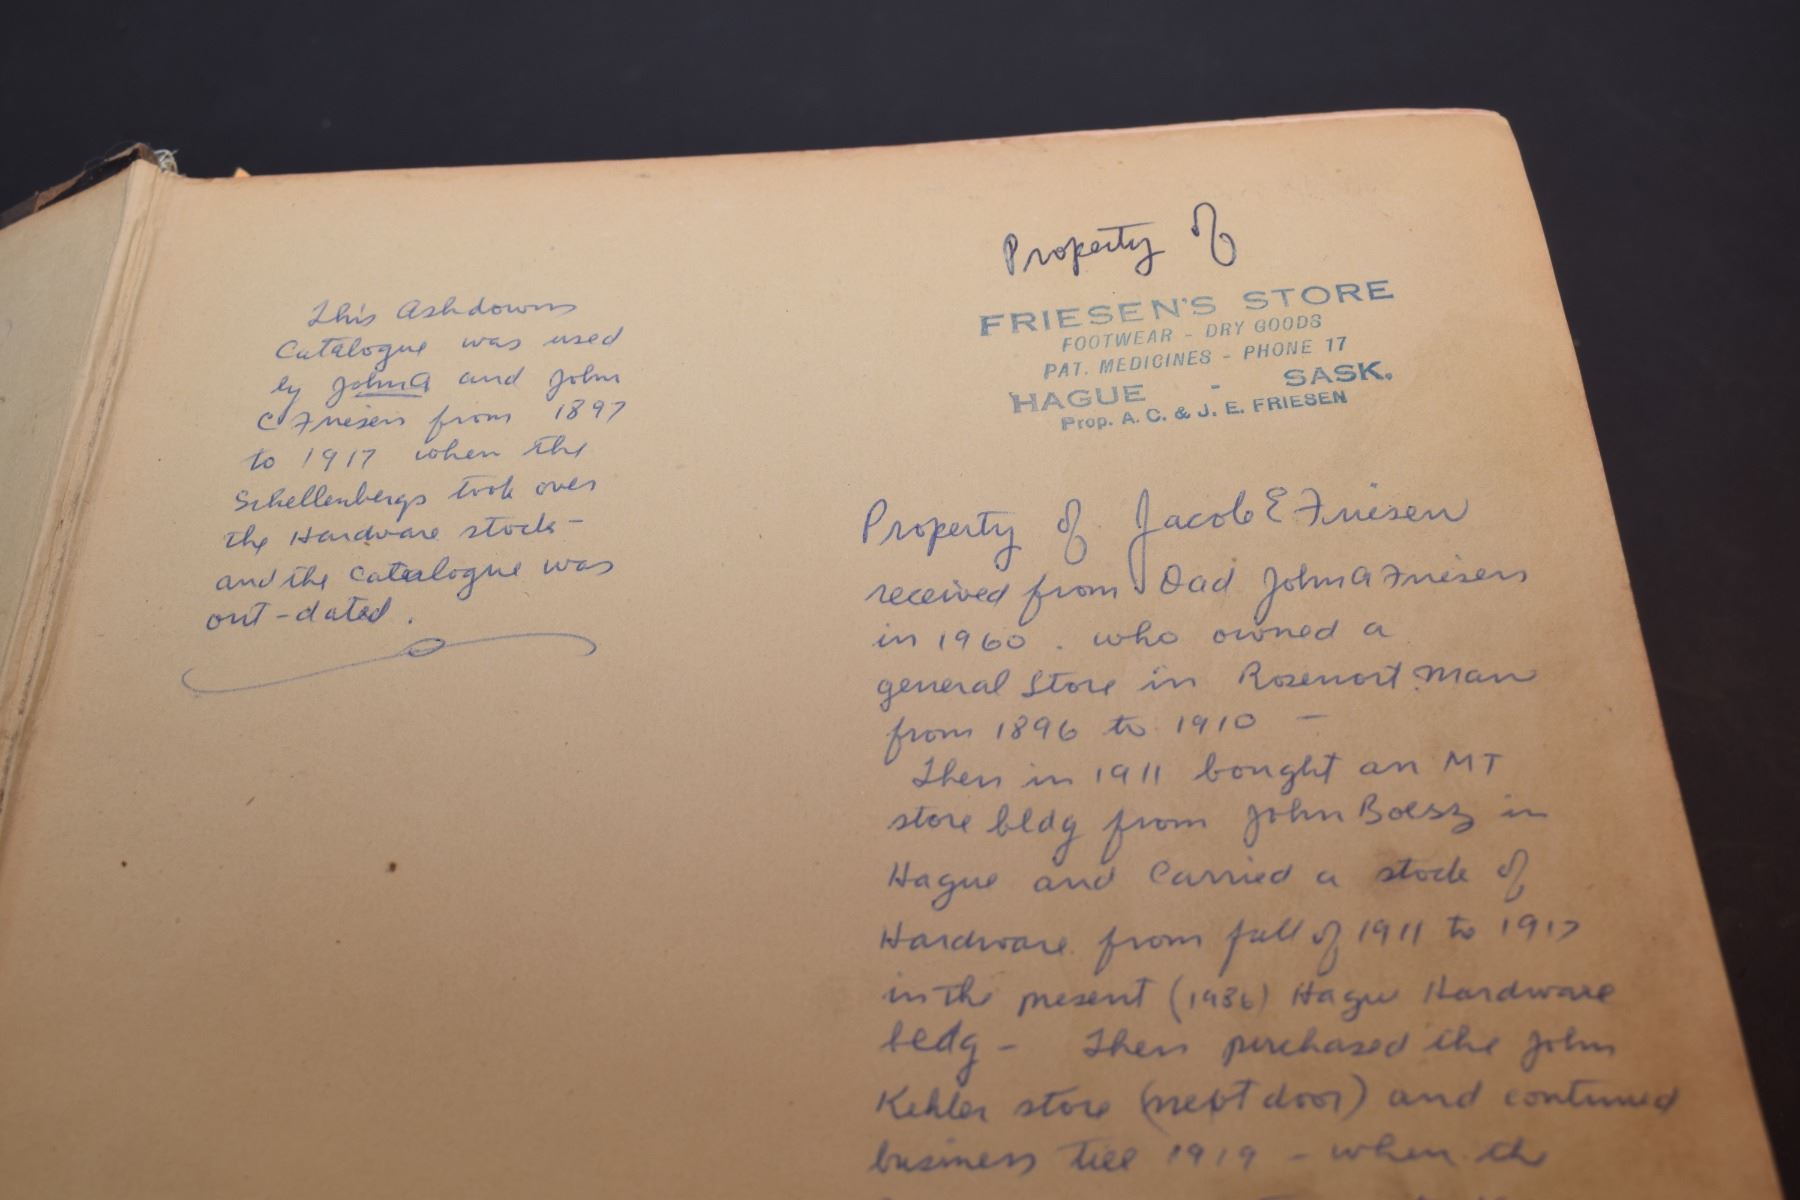 This Ashdowns
Catalogue was used
by John A and John
C Friesen from 1897
to 1917 when the
Schellenbergs took over
the Hardware stock -
and the Catalogue was
out-dated.
Property of
FRIESEN'S STORE
FOOTWEAR - DRY GOODS
PAT. MEDICINES - PHONE 17
HAGUE - SASK.
Prop. A. C. & J. E. FRIESEN
Property of Jacob E Friesen
received from Dad John A Friesen
in 1960. who owned a
general Store in Rosenort Man
from 1896 to 1910 -
Then in 1911 bought an MT
store bldg from John Boesz in
Hague and Carried a stock of
Hardware from fall of 1911 to 1917
in the present (1986) Hague Hardware
bldg - Then purchased the John
Kehler store (next door) and continued
business till 1919 - when the